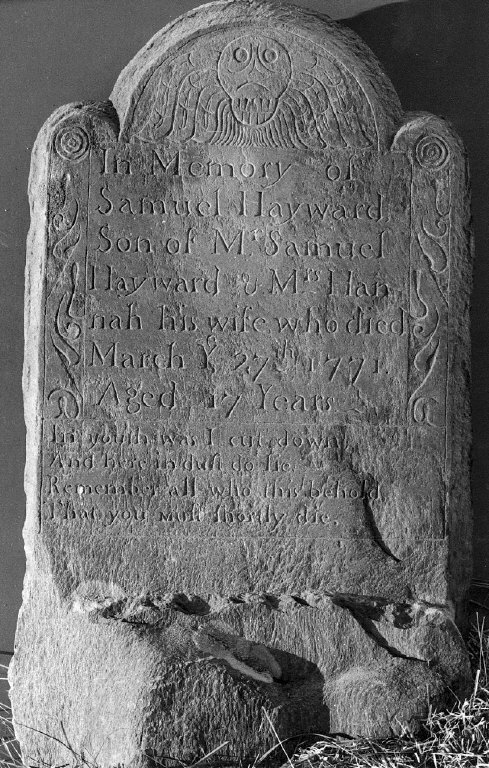 In Memory of
Samuel Hayward
Son of Mr Samuel
Hayward & Mrs Han
nah his wife who died
March Ye 27th 1771.
Aged 17 Years
In youth was I cut down
And here in dust do lie.
Remember all who this behold
That you must shortly die.